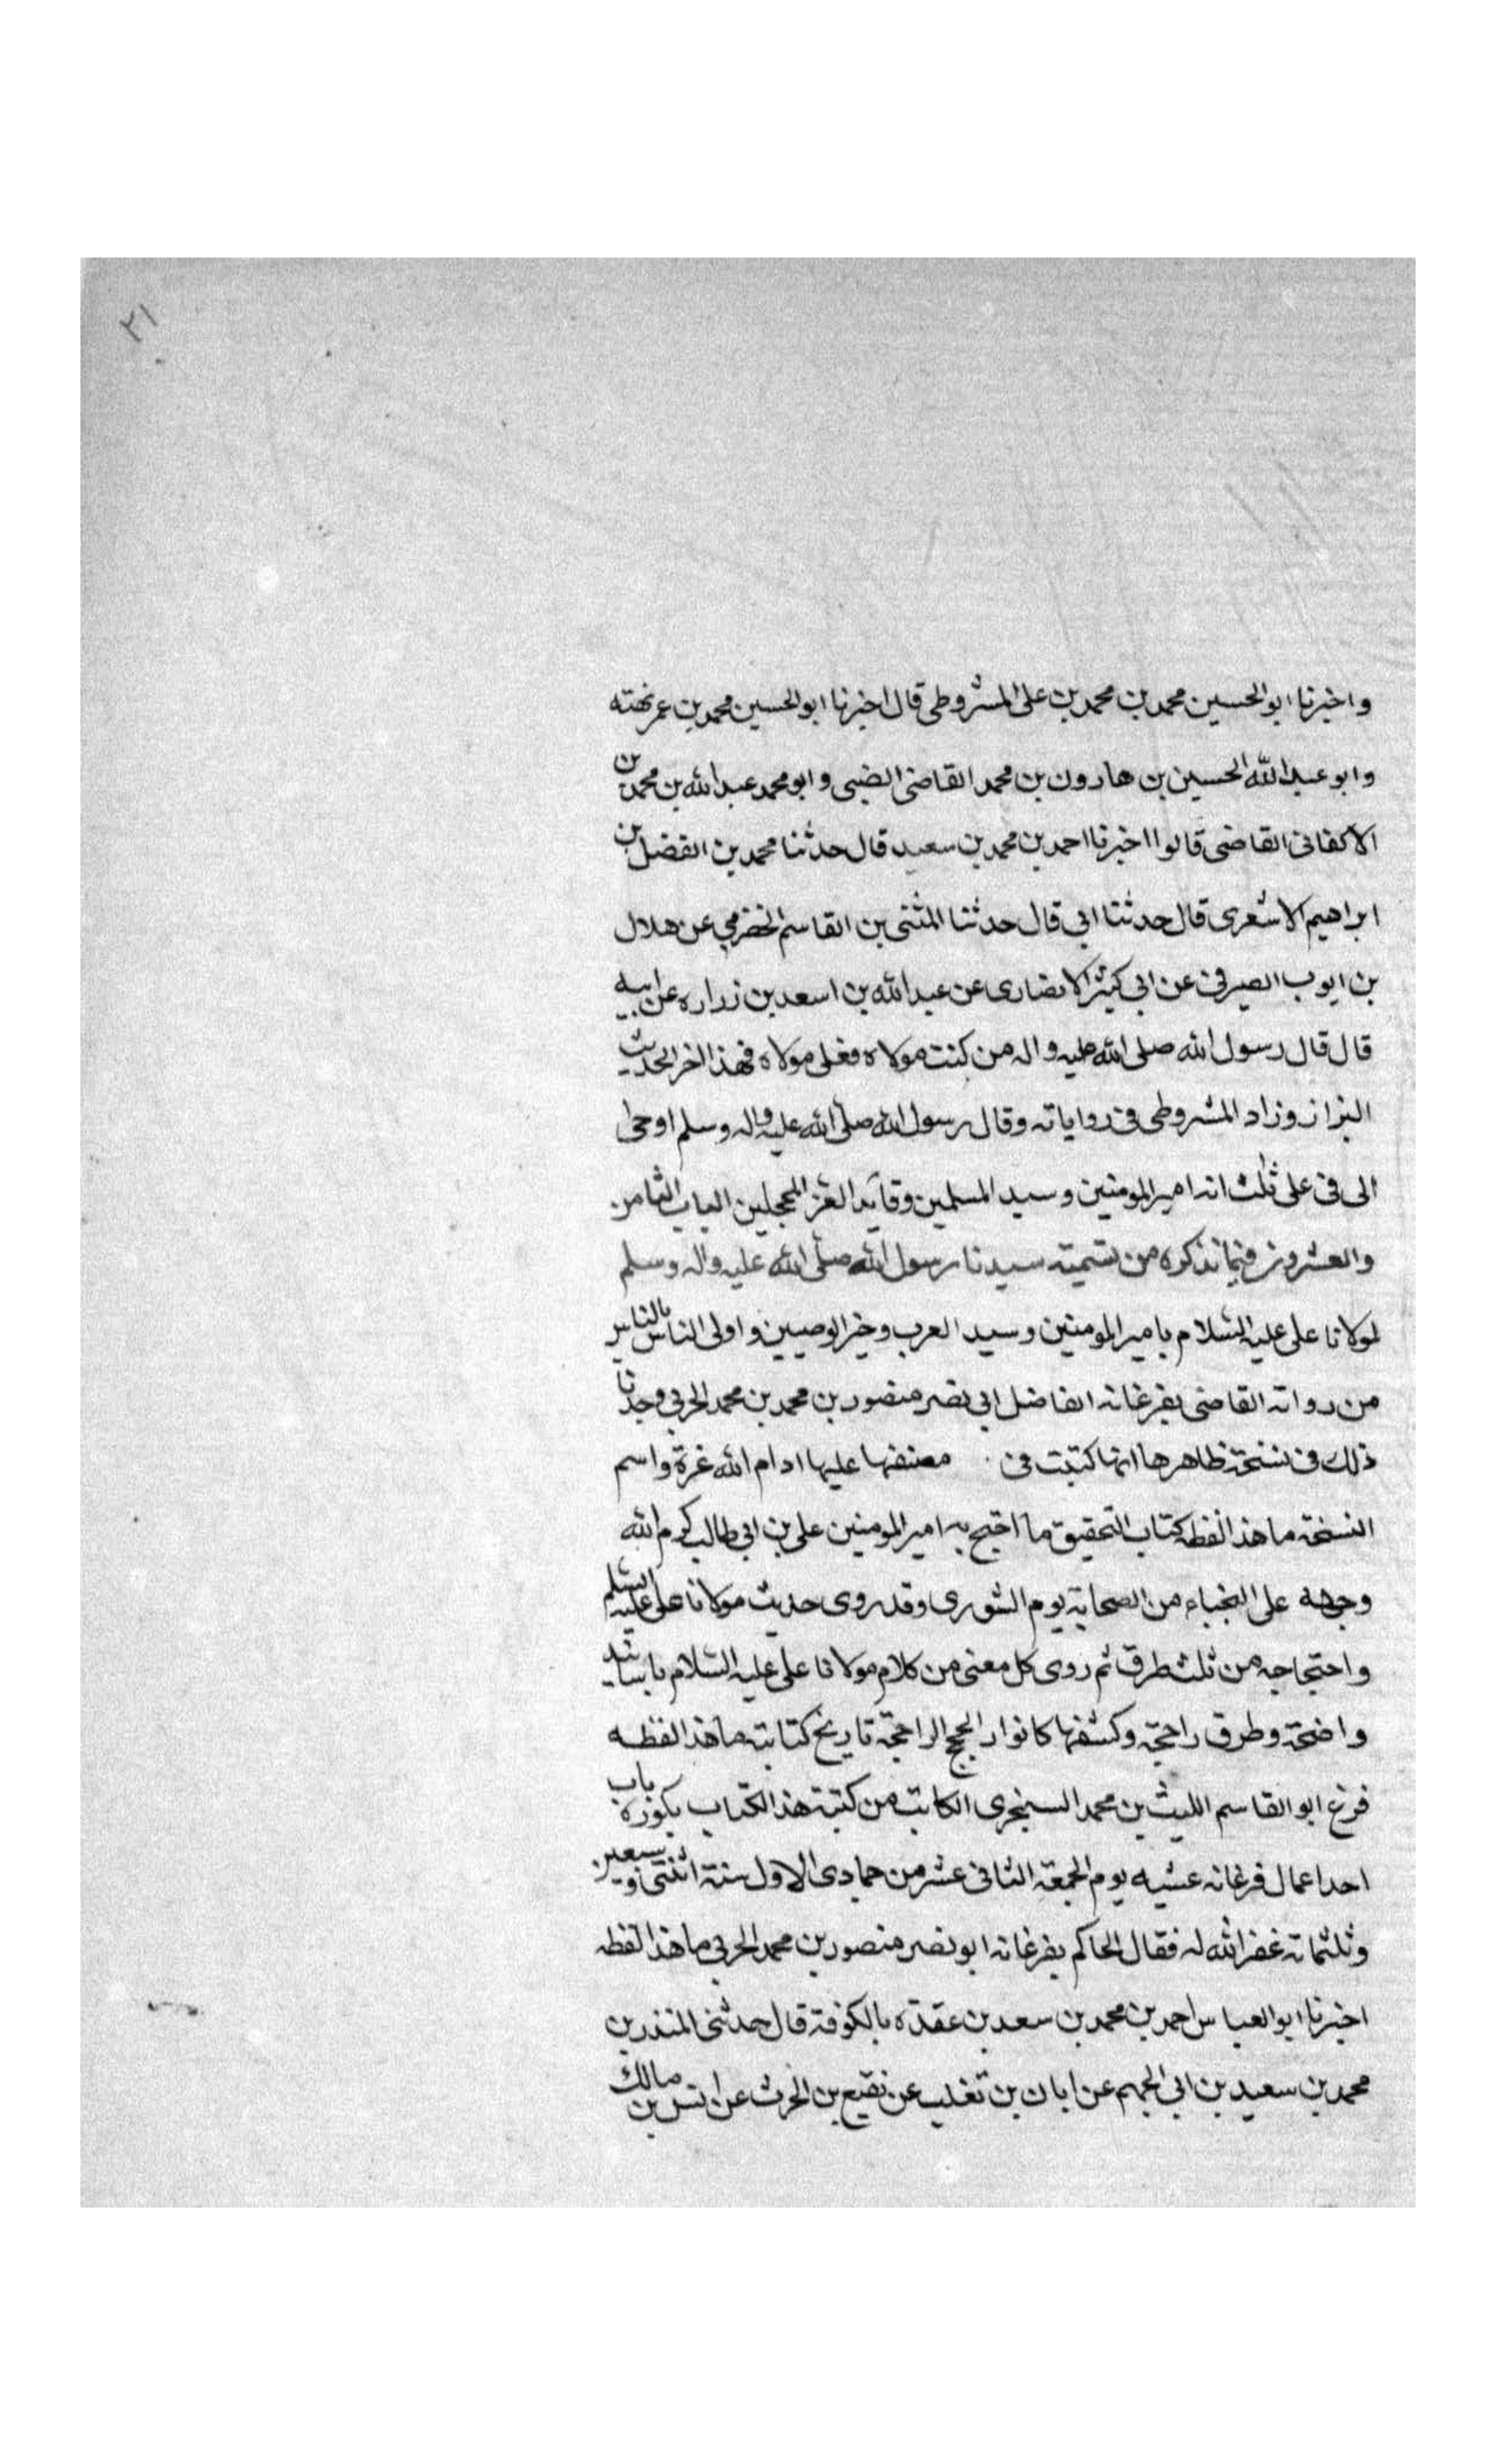 ٢١
واخبرنا ابو الحسين محمد بن محمد بن على المشروطى قال اخبرنا ابو الحسين محمد بن عمر بهته
وابو عبد الله الحسين بن هارون بن محمد القاضى الضبى وابو محمد عبد الله بن محمد بن
الاكفانى القاضى قالوا اخبرنا احمد بن محمد بن سعيد قال حدثنا محمد بن الفضل بن
ابراهيم الاشعرى قال حدثنا ابى قال حدثنا المثنى بن القاسم الحضرمي عن هلال
بن ايوب الصيرفى عن ابى كثير الانصارى عن عبد الله بن اسعد بن زراره عن ابيه
قال قال رسول الله صلى الله عليه واله من كنت مولاه فعلى مولاه فهذا اخر الحديث
البزاز وزاد المشروطى فى رواياته وقال رسول الله صلى الله عليه واله وسلم اوحى
الى فى على ثلث انه امير المومنين وسيد المسلمين وقايد الغر المحجلين الباب الثامن
والعشرون فيما نذكره من تسميته سيدنا رسول الله صلى الله عليه واله وسلم
لمولانا على عليه السلام بامير المومنين وسيد العرب وخير الوصيين واولى الناس بالناس
من رواته القاضى بفرغانه الفاضل ابى نصر منصور بن محمد بن محمد الحربي وجدنا
ذلك فى نسخة ظاهرها انها كتبت فى مصنفها عليها ادام الله عزة واسم
النسخة ما هذا لفظه كتاب التحقيق ما احتج به امير المومنين على بن ابى طالب كرم الله
وجهه على النجباء من الصحابة يوم الشورى وقد روى حديث مولانا على عليه السلم
واحتجاجه من ثلث طرق ثم روى كل معنى من كلام مولانا على عليه السلام باسانيد
واضحة وطرق راجحة وكشفها كانوار الحجج الراجحة تاريخ كتابته ما هذا لفظه
فرغ ابو القاسم الليث بن محمد السنجرى الكاتب من كتبة هذا الكتاب بكوزة باب
احد اعمال فرغانه عشيه يوم الجمعة الثانى عشر من جمادى الاول سنة اثنتى وسبعين
وثلثمائة غفر الله له فقال الحاكم بفرغانه ابو نصر منصور بن محمد الحربي ما هذا لفظه
اخبرنا ابو العباس احمد بن محمد بن سعد بن عقدة بالكوفة قال حدثنى المنذر بن
محمد بن سعيد بن ابى الجهم عن ابان بن تغلب عن نفيع بن الحرث عن انس بن مالك